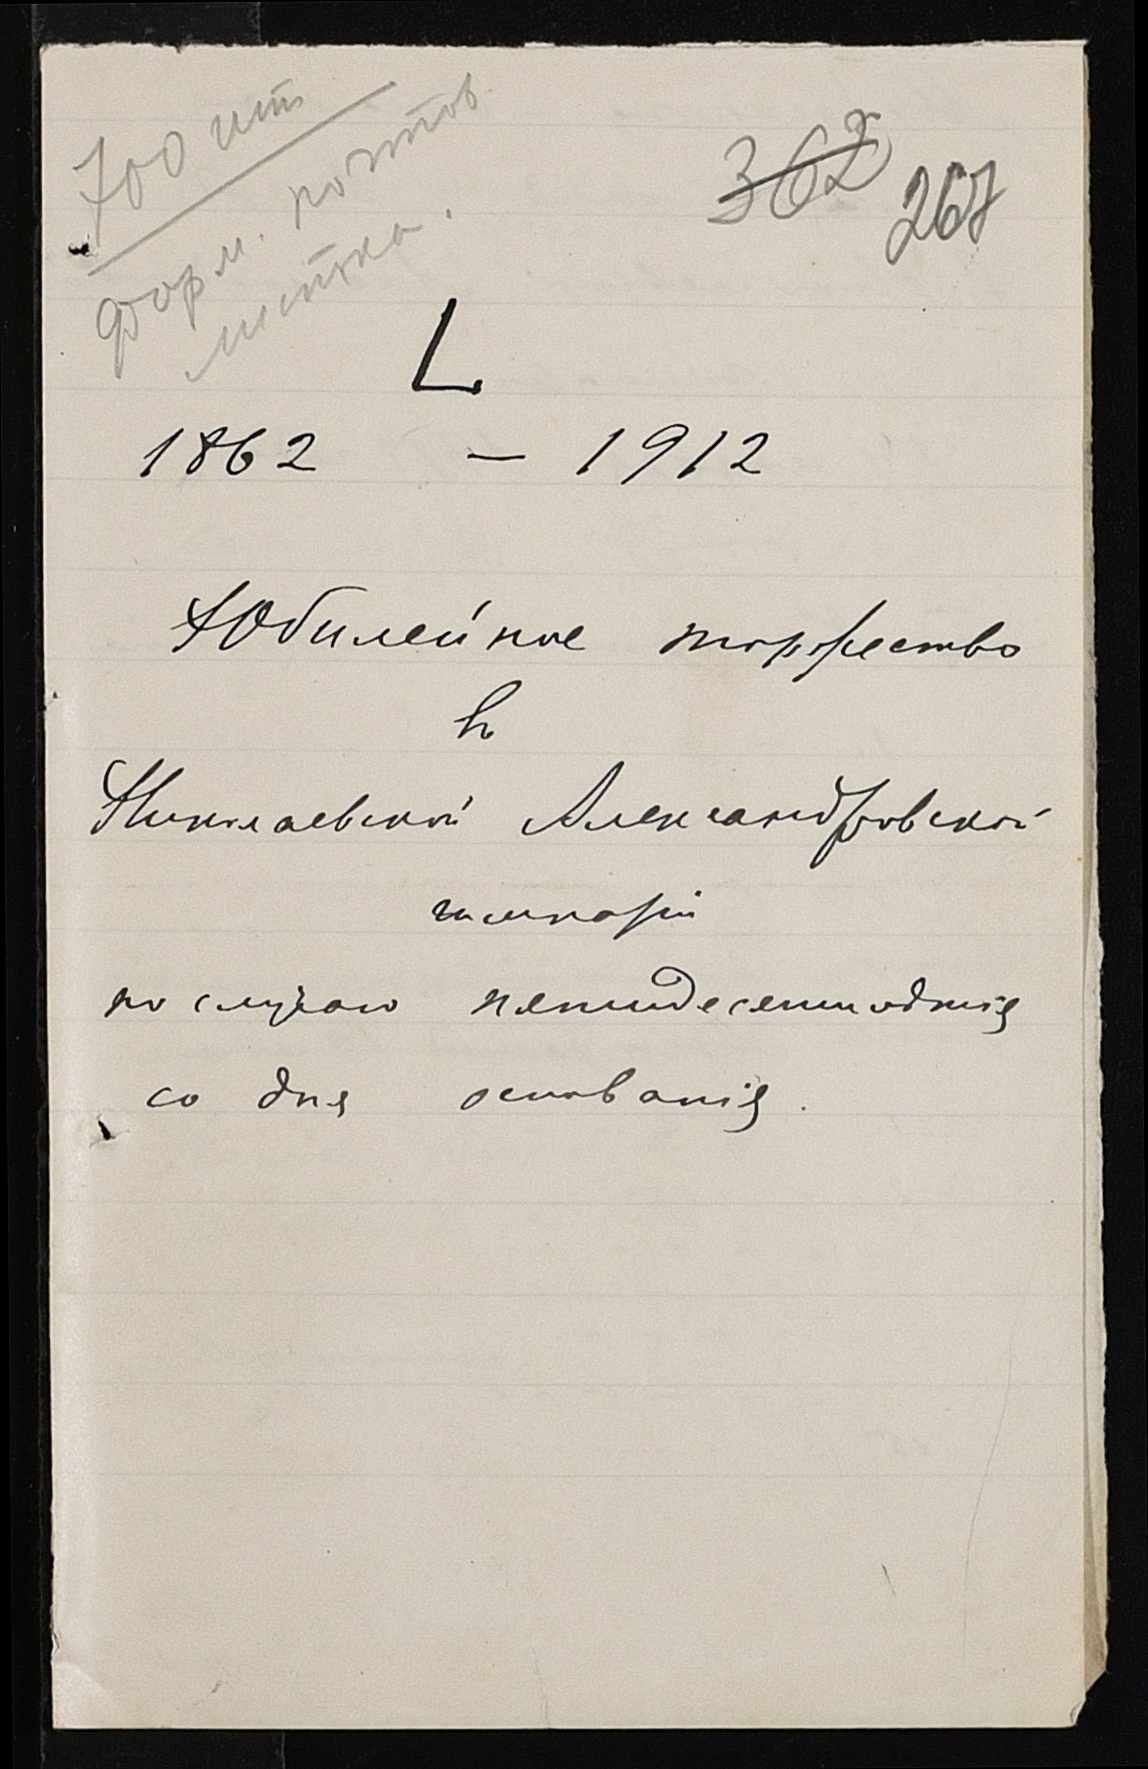 700 шт
форм. почтов
листка.
362
267
L
1862 — 1912
Юбилейное торжество
въ
Николаевской Александровской
гимназіи
по случаю пятидесятилѣтія
со дня основанія.